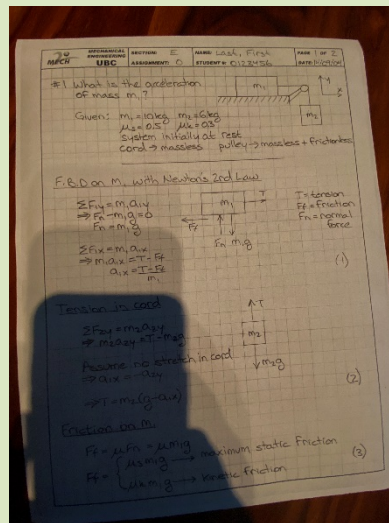 MECH
MECHANICAL ENGINEERING UBC
SECTION: E
ASSIGNMENT: 0
NAME: Last, First
STUDENT #: 0123456
PAGE 1 OF 2
DATE:
#1 What is the acceleration
of mass m₁?
m₁
y
x
m₂
Given: m₁=10kg m₂=6kg
μs=0.5 μk=0.3
system initially at rest
cord → massless pulley → massless + frictionless
F.B.D on M, with Newton's 2nd Law
ΣF₁y=m₁a₁y
⇒ Fn-m₁g=0
Fn=m₁g
m₁
T
Ff
Fn m₁g
T=tension
Ff=friction
Fn=normal
force
ΣF₁x=m₁a₁x
⇒ m₁a₁x=T-Ff
a₁x=T-Ff/m₁
(1)
Tension in cord
ΣF₂y=m₂a₂y
⇒ m₂a₂y=T-m₂g
Assume no stretch in cord
⇒ a₁x=-a₂y
⇒ T=m₂(g-a₁x)
T
m₂
m₂g
(2)
Friction on M₁
Ff=μFn=μm₁g
Ff={μsm₁g → maximum static friction
μkm₁g → kinetic friction
(3)